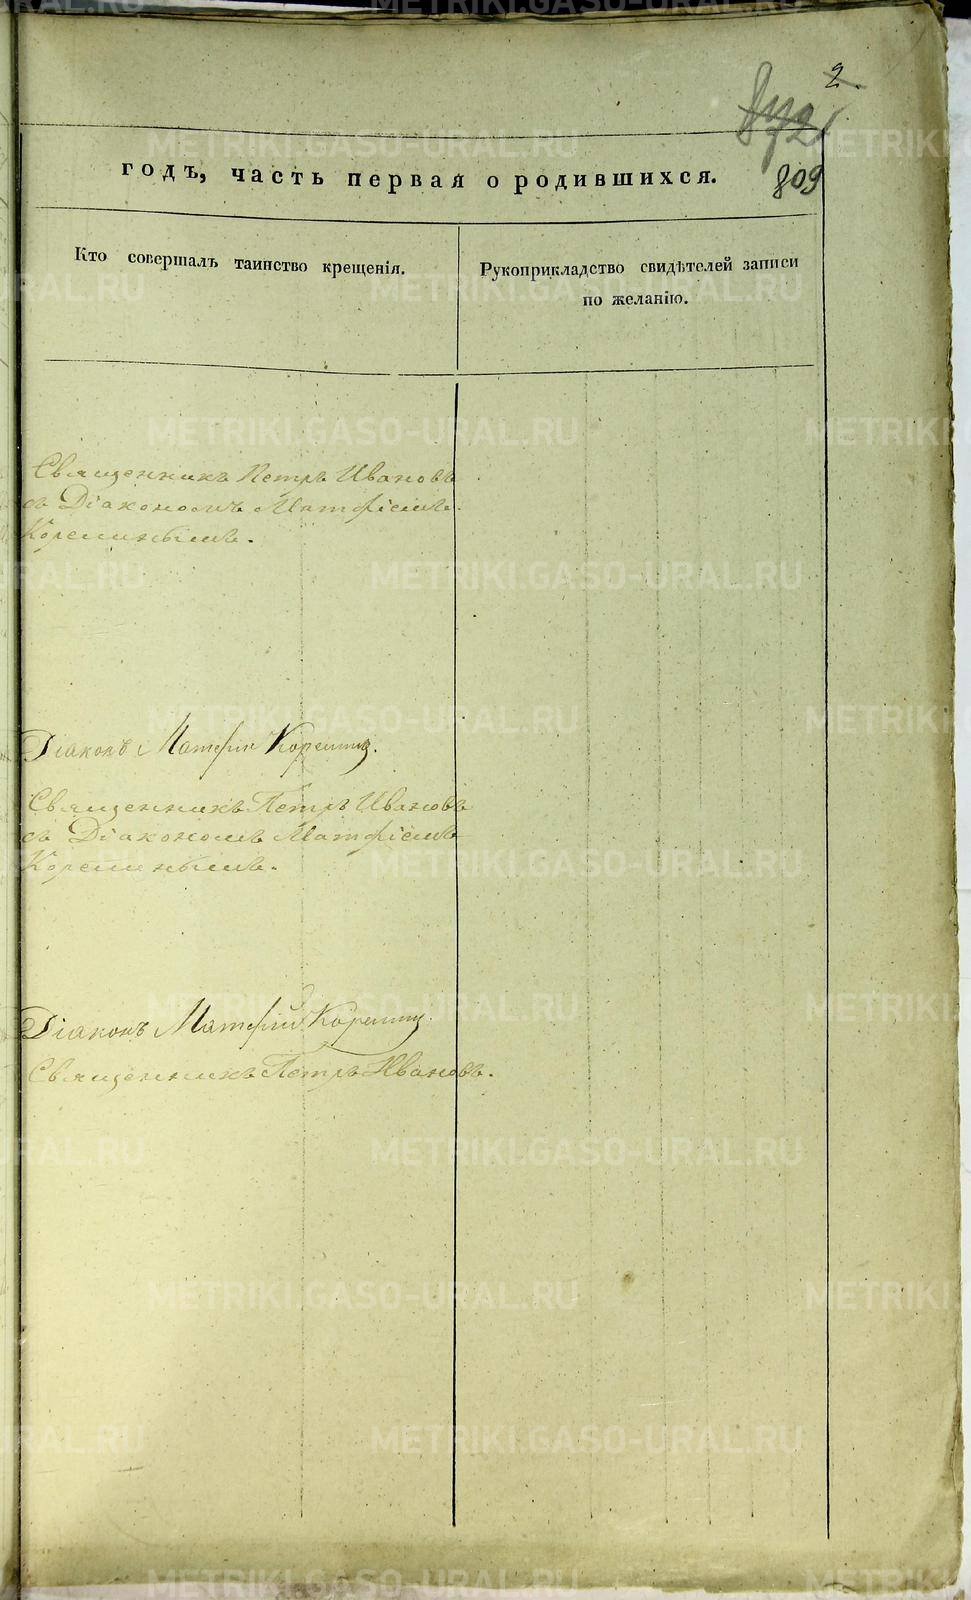 2.
872
809
годъ, часть первая о родившихся.
Кто совершалъ таинство крещенія.
Рукоприкладство свидѣтелей записи
по желанію.
Священникъ Петръ Ивановъ
съ Діакономъ Матфіемъ
Корепинымъ.
Діаконъ Матфій Корепинъ.
Священникъ Петръ Ивановъ
съ Діакономъ Матфіемъ
Корепинымъ.
Діаконъ Матфій Корепинъ.
Священникъ Петръ Ивановъ.
METRIKI.GASO-URAL.RU